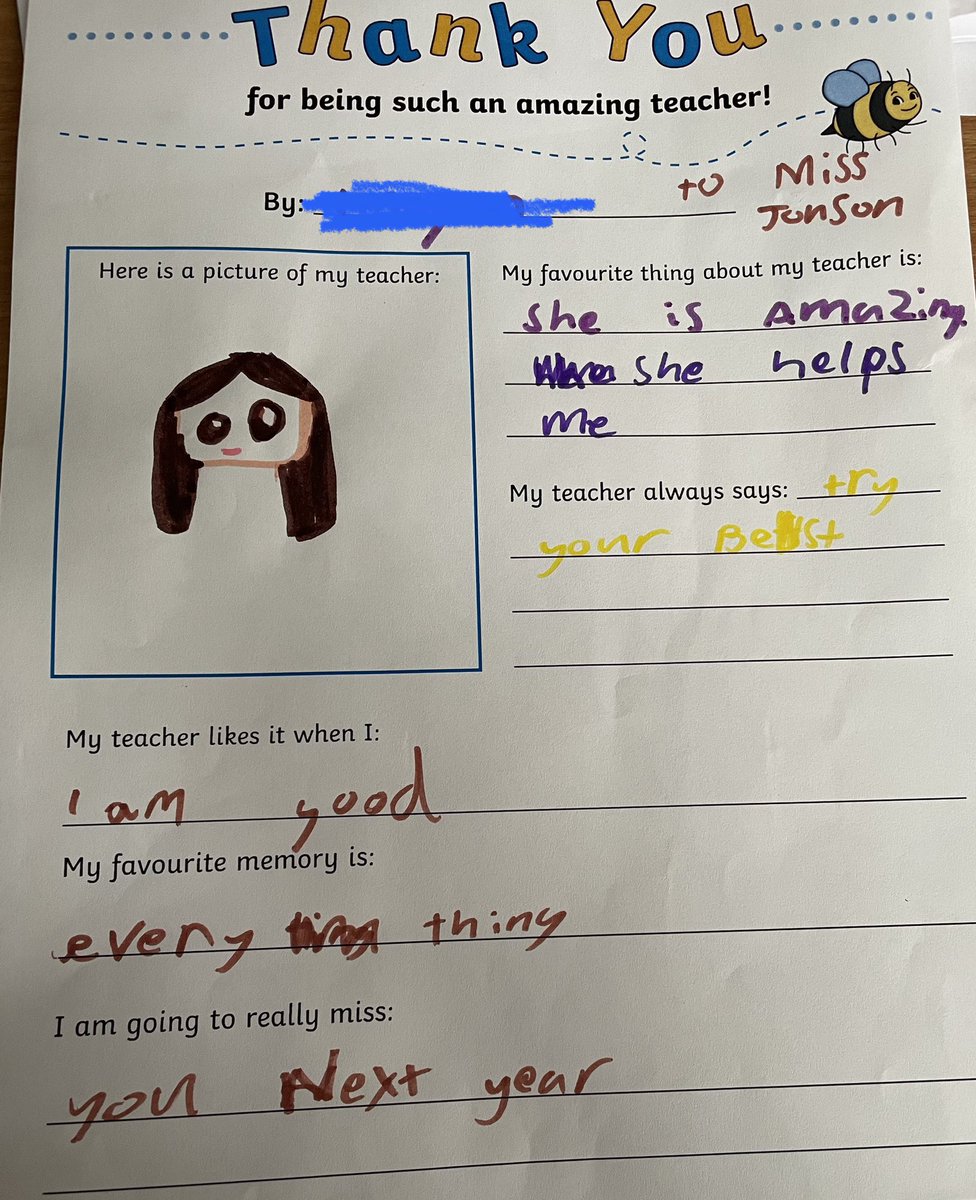 Thank You
for being such an amazing teacher!
By: to Miss
Jonson
Here is a picture of my teacher:
My favourite thing about my teacher is:
She is Amazing
she helps
me
My teacher always says: try
your Best
My teacher likes it when I:
I am good
My favourite memory is:
every thing
I am going to really miss:
you Next year